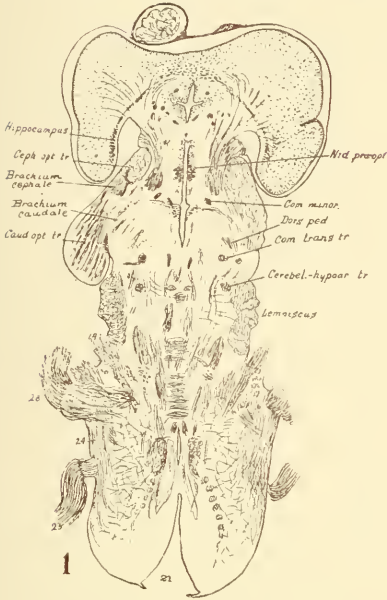 Hippocampus
Ceph opt tr
Brachium
cephale
Brachium
caudate
Caud opt tr
Nid præopt
Com minor.
Dors ped
Com trans tr
Cerebel.-hypoar tr
Lemniscus
19
26
24
25
1
22